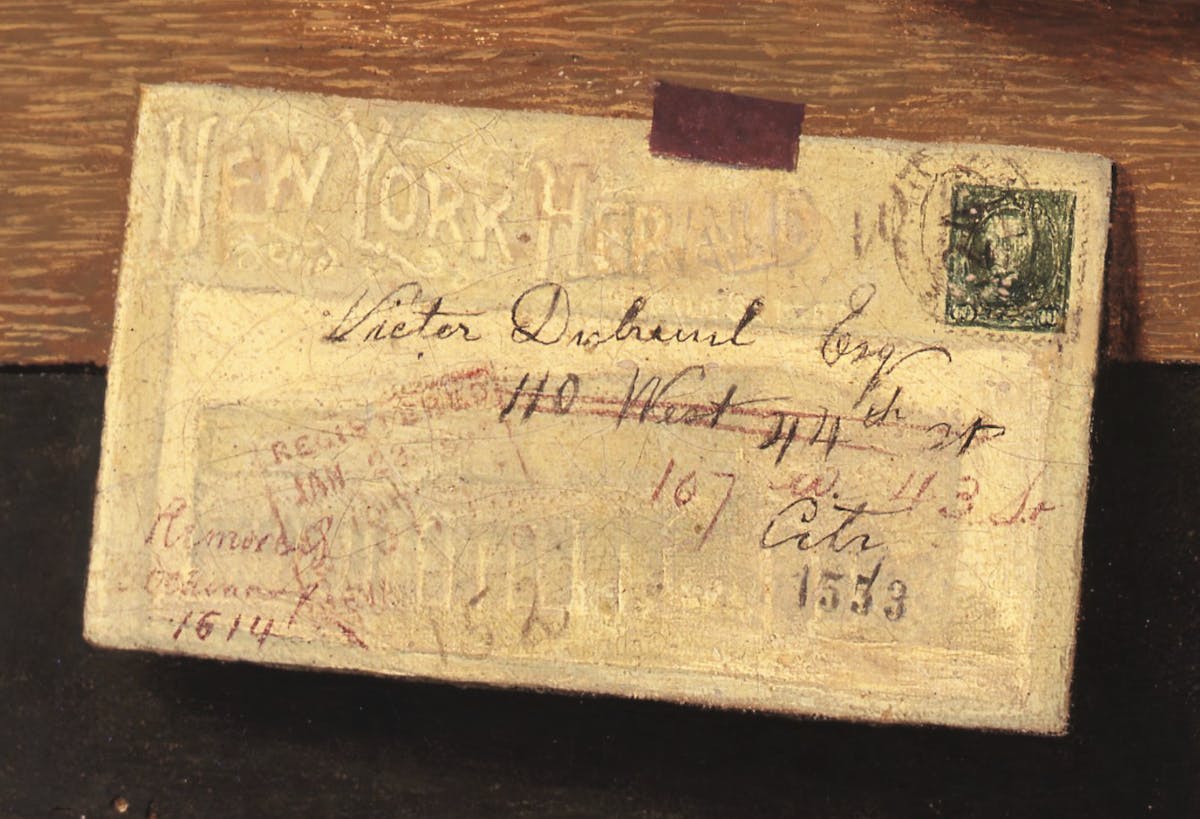 NEW YORK HERALD
Victor Dubreuil Esq
110 West 44th st
REGISTERED
JAN 23
167 w. 43 St
City
1553
1614